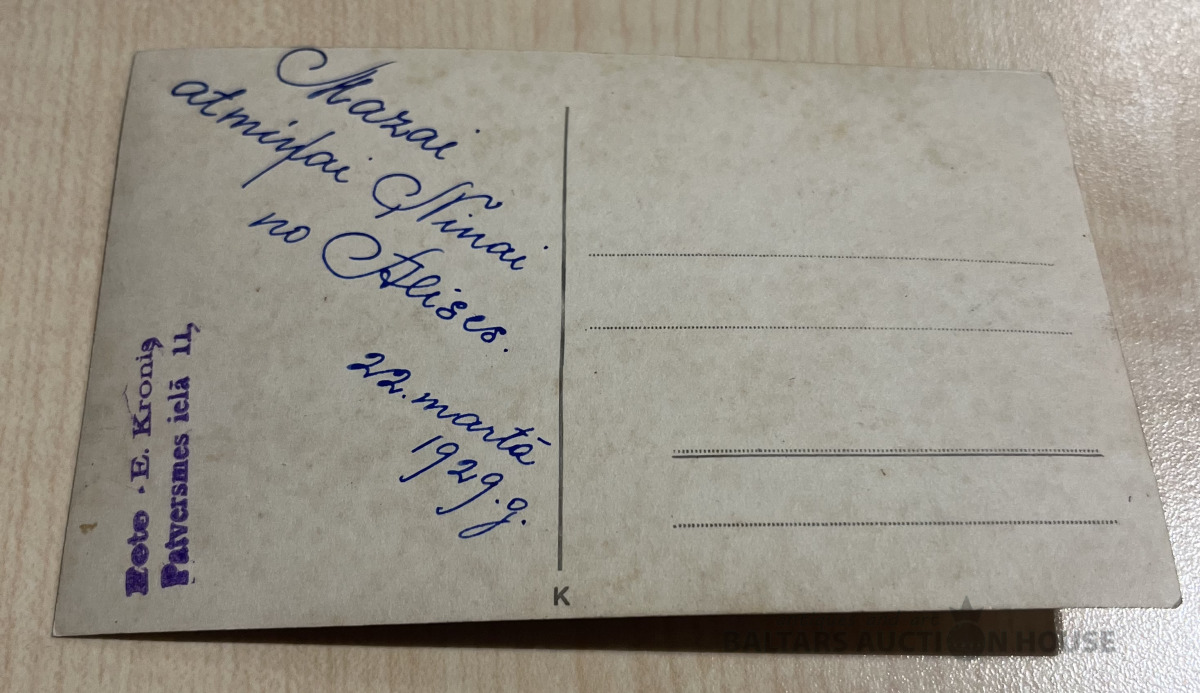 Mazai
atmiņai Ninai
no Alises.
22. martā
1929. g.
Foto · E. Kroniş
Patversmes ielā 11,
K
BALTARS AUCTION HOUSE